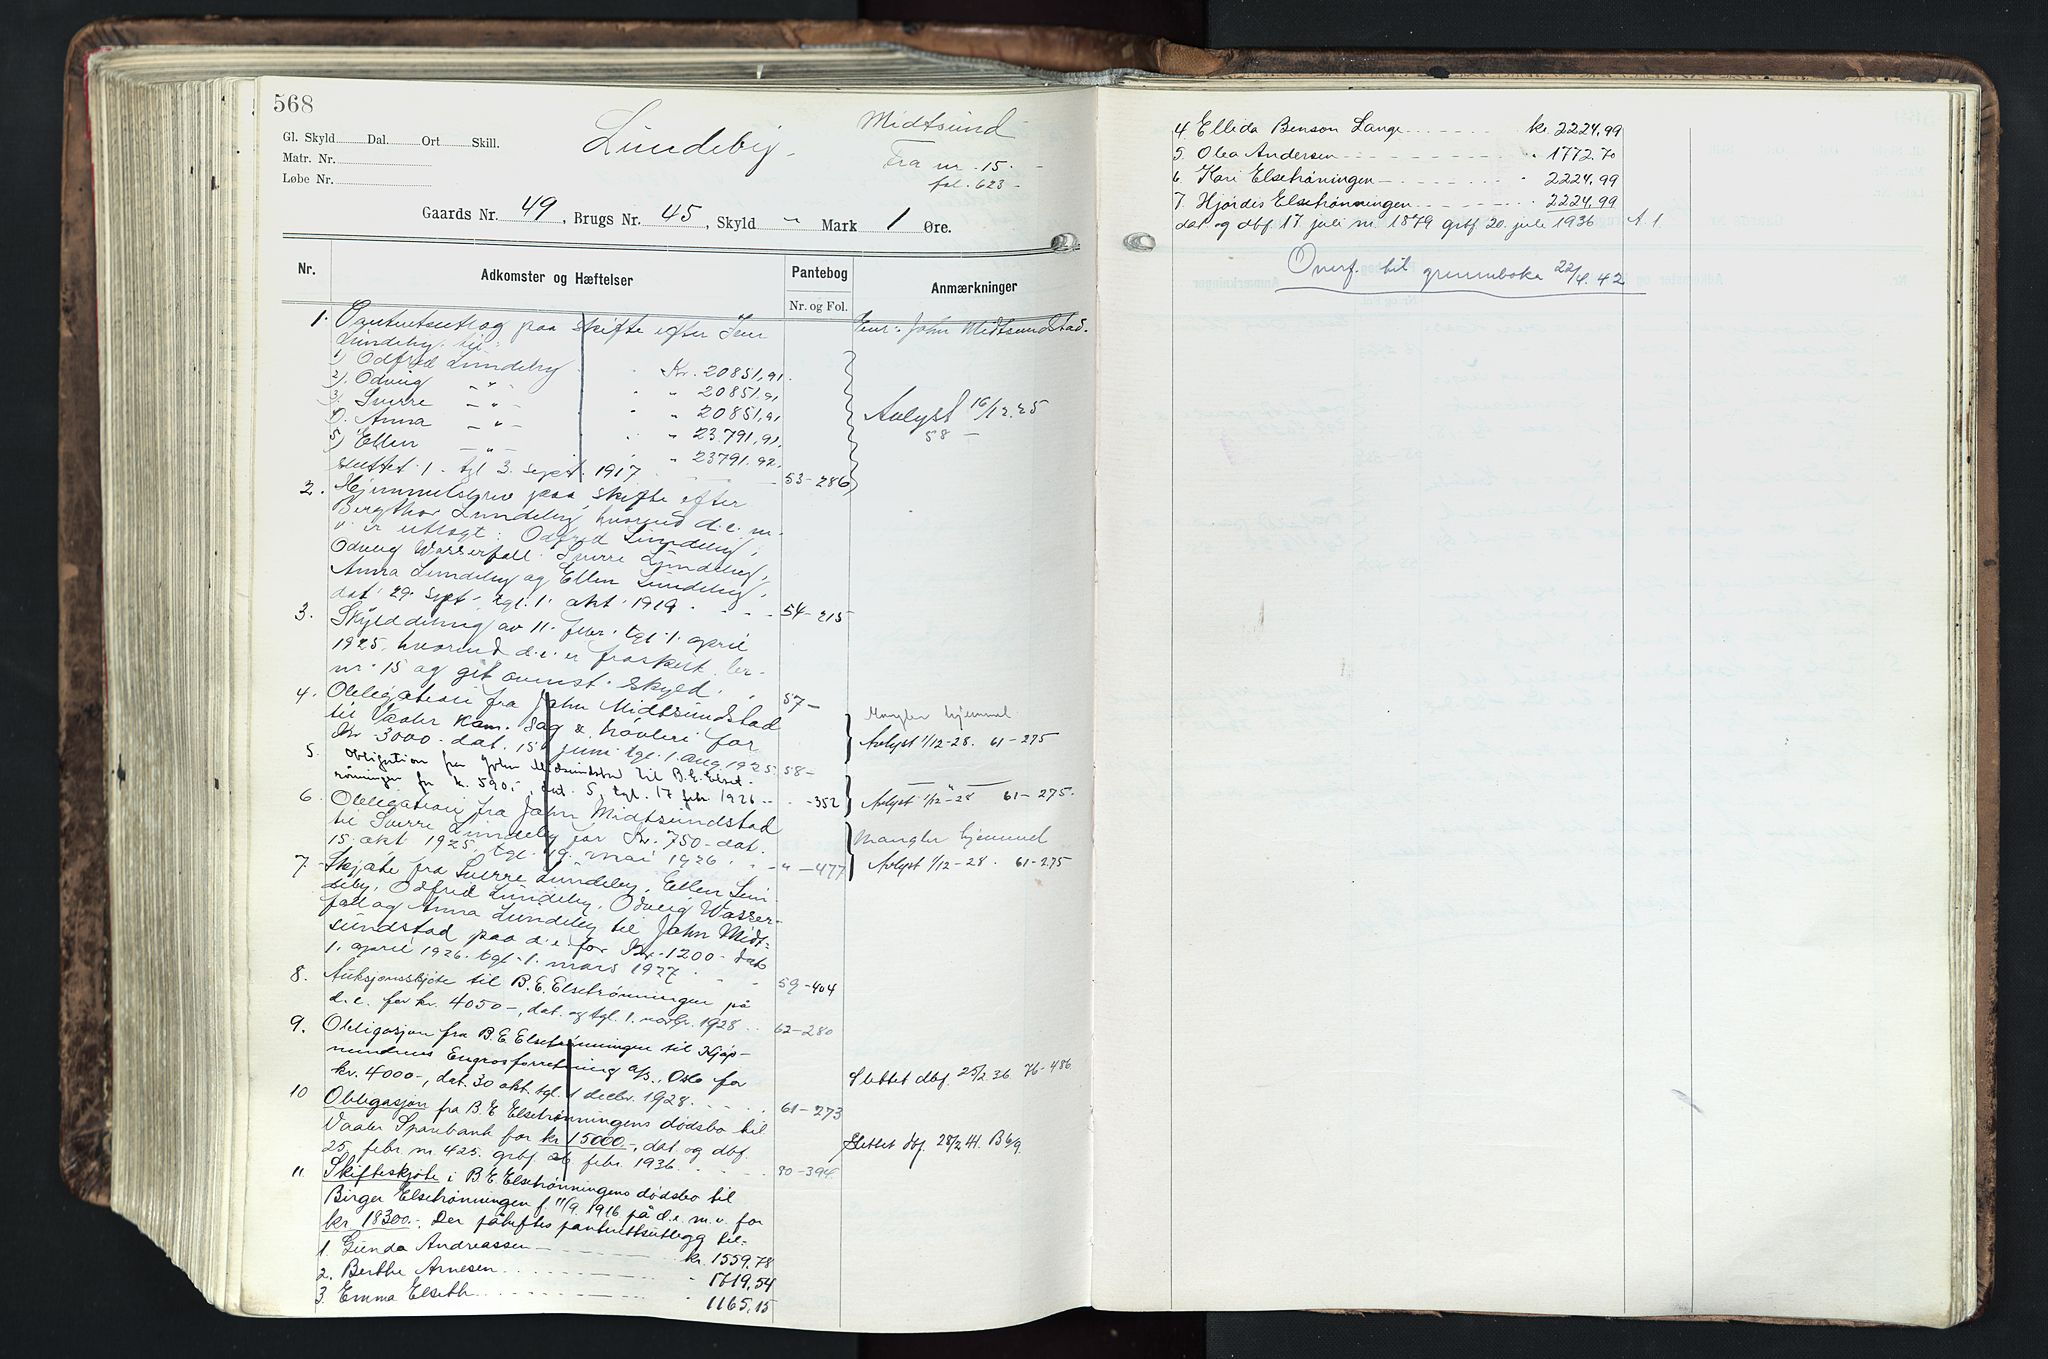 568
Gl. Skyld Dal. Ort Skill.
Matr. Nr.
Løbe Nr.
Lundeby.
Midtsund
Fra nr. 15.
fol. 623
Gaards Nr. 49, Brugs Nr. 45, Skyld " Mark 1 Øre.
Nr. Adkomster og Hæftelser Pantebog Anmærkninger
Nr. og Fol.
1. Panteutdrag paa skifte efter Iver Eier: John Midtsundstad.
Lundeby til:
1) Odfrid Lundeby Kr. 20851,91.
2) Odveig — " — " 20851,91
3) Sverre — " — " 20851,91
4) Anna — " — " 23.791,91.
5) Ellen — " — " 23791,92.
sluttet 1. tgl 3. sept. 1917 53-286
Avlyst 16/12.25
58 —
2. Hjemmelsbrev paa skifte efter
Bergthor Lundeby, hvorved d.e. m.
v. er utlagt: Odfrid Lundeby,
Odveig Wasserfall. Sverre Lundeby,
Anna Lundeby og Ellen Lundeby,
dat. 29. sept., tgl. 1. okt. 1919. 54-215
3. Skylddeling av 11. febr. tgl. 1. april
1925, hvorved d.e. er fraskilt br.
nr. 15 og git ovenst. skyld. 57-
4. Obligation fra John Midtsundstad
til Vaaler Kom. sag & høvleri for
Kr. 3000.- dat. 15 juni tgl. 1. aug. 1925. 58-
Mangler hjemmel
Avlyst 1/12-28. 61-275
5. Obligation fra John Midtsundstad til B.E. Elset-
rønningen for kr. 590,-, dat. 5, tgl. 17 febr. 1926 " -352
— " —
Avlyst 1/12-28 61-275.
6. Obligation fra John Midtsundstad
til Sverre Lundeby for Kr. 750- dat.
15. okt 1925, tgl. 19. mai 1926. " -477
Mangler hjemmel
Avlyst 1/12-28. 61-275
7. Skjøte fra Sverre Lundeby, Ellen Lun-
deby, Odfrid Lundeby, Odveig Wasser-
fall og Anna Lundeby til John Midt-
sundstad paa d.e. for Kr. 1200- dat.
1. april 1926. tgl. 1. mars 1927 59-404
8. Auksjonsskjøte til B.E. Elsetrønningen på
d.e. for kr. 4050-, dat. og tgl. 1. novbr. 1928 62-280
9. Obligasjon fra B.E. Elsetrønningen til Kjøp-
mendenes Engrosforretning a/s., Oslo for
kr. 4000-, dat. 30 okt. tgl. 1 decbr. 1928. 61-273
Slettet dbf. 25/2.36. 76-486
10 Obligasjon fra B.E. Elsetrønningens dødsbo til
Vaaler Sparebank for kr 15000.-, dat. og dbf.
25. febr. nr. 425. grbf. 26 febr. 1936. 80-394
Slettet dbf. 28/2 41. B 6/9.
11. Skifteskjøte i B E Elsetrønningens dødsbo til
Birger Elsetrønningen f. 11/9. 1916 på d.e. m.v. for
kr 18300.-. Der påheftes panterettsutlegg til:
1. Gunda Andreassen kr. 1559,78
2. Berthe Arnesen " 1719,54
3. Emma Elseth " 1165,15
4. Ellida Benson Lange kr. 2224,99
5. Olea Andersen " 1772.70
6 Kari Elsetrøningen " 2224,99
7. Hjørdis Elsetrønningen 2224,99
dat og dbf. 17 juli nr. 1879 grbf. 20. juli 1936 A 1
Overf. til grunnboka 22/4. 42